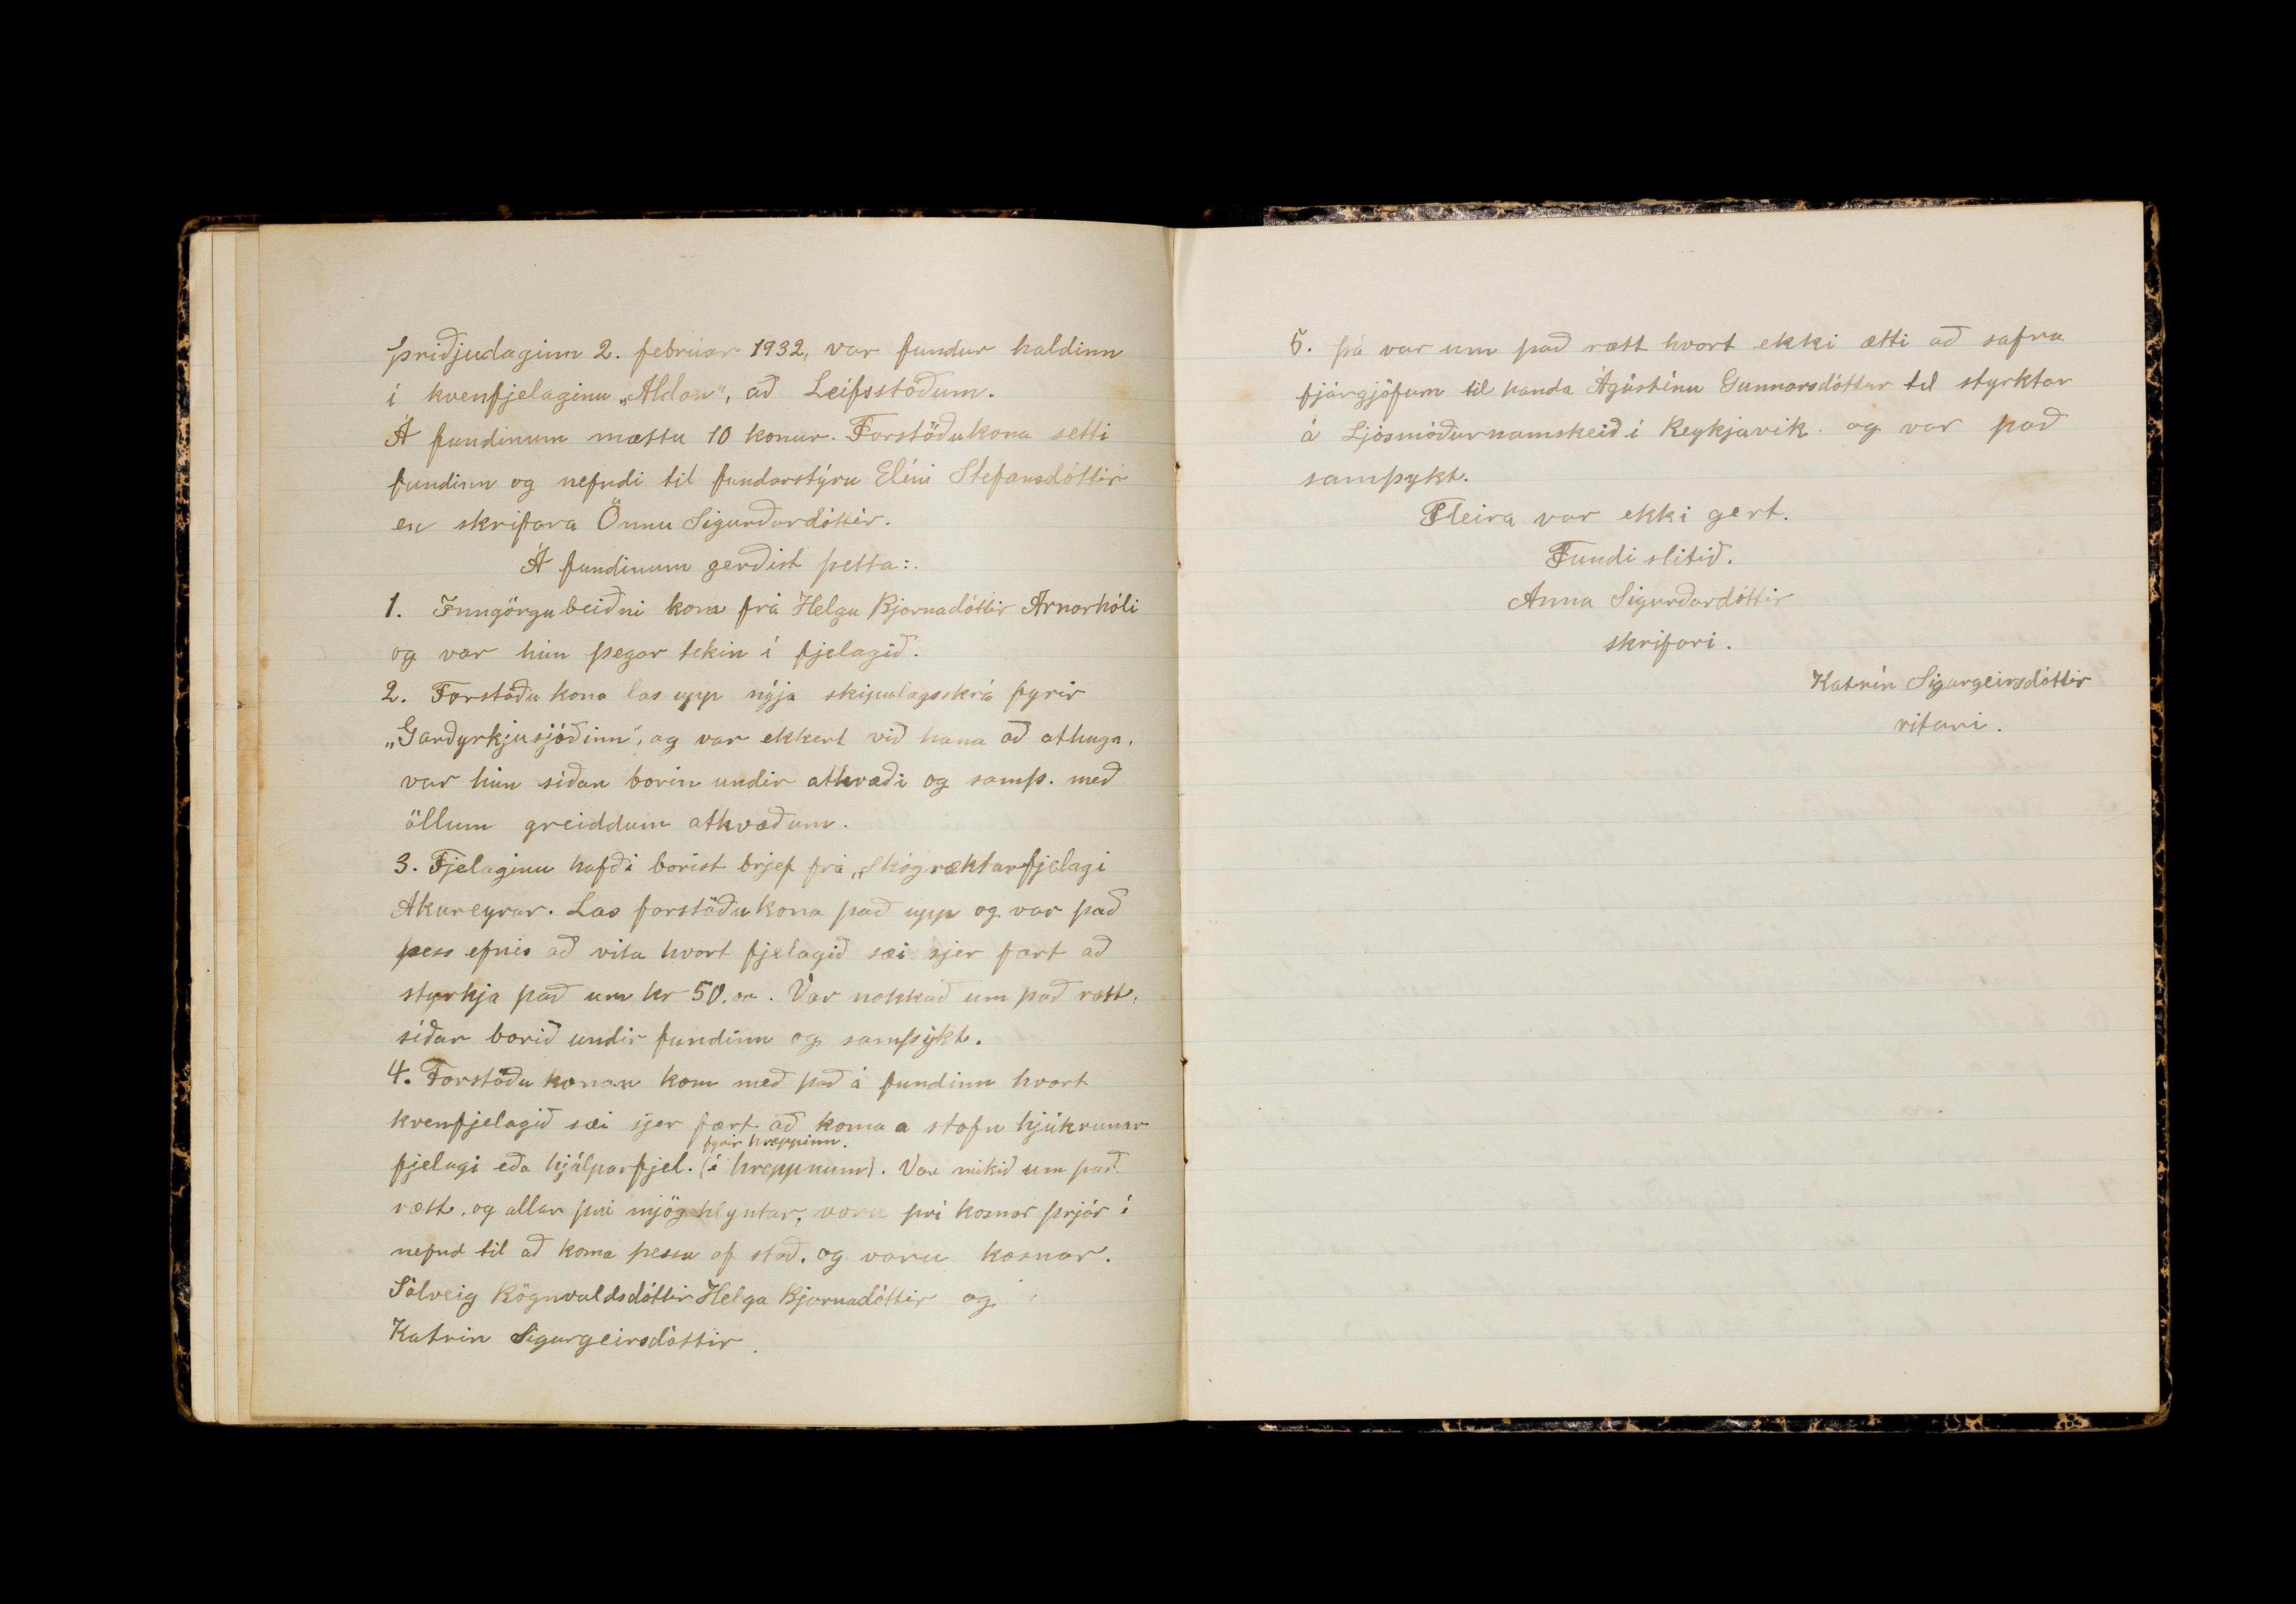 Þriðjudaginn 2. februar 1932, var fundur haldinn
í kvenfjelaginu „Aldan", að Leifsstöðum.
Á fundinum mættu 10 konur. Forstöðukona setti
fundinn og nefndi til fundarstýru Elíni Stefansdóttir
en skrifara Önnu Sigurðardóttir.
Á fundinum gerðist þetta:.
1. Inngöngubeiðni kom frá Helgu Bjornadóttir Arnarhóli
og var hún þegar tekin í fjelagið.
2. Forstöðukona las upp nýja skipulagsskrá fyrir
„Garðyrkjusjóðinn", og var ekkert við hana að athuga,
var hún síðan borin undir atkvæði og samþ. með
öllum greiddum atkvæðum.
3. Fjelaginu hafði borist brjef frá „Skógræktarfjelagi
Akureyrar. Las forstöðukona það upp og var það
þess efnis að vita hvort fjelagið sæi sjer fært að
styrkja það um kr 50.oo. Var nokkuð um það rætt,
síðar borið undir fundinn og samþýkt.
4. Forstöðukonan kom með það á fundinn hvort
kvenfjelagið sæi sjer fært að koma a stofn hjúkrunar
fyrir hreppinn.
fjelagi eða hjálparfjel. (í hreppnum). Var mikið um það
rætt, og allar því mjög hlyntar, voru því kosnar þrjár í
nefnd til að koma þessu af stað, og voru kosnar.
Sólveig Rögnvaldsdóttir Helga Bjornadóttir og
Katrin Sigurgeirsdóttir.
5. Þá var um það rætt hvort ekki ætti að safna
fjárgjöfum til handa Ágústínu Gunnarsdóttur til styrktar
á Ljósmóðurnamskeið í Reykjavik. og var það
samþykt.
Fleira var ekki gert.
Fundi slitið.
Anna Sigurðardóttir
skrifari.
Katrín Sigurgeirsdóttir
ritari.